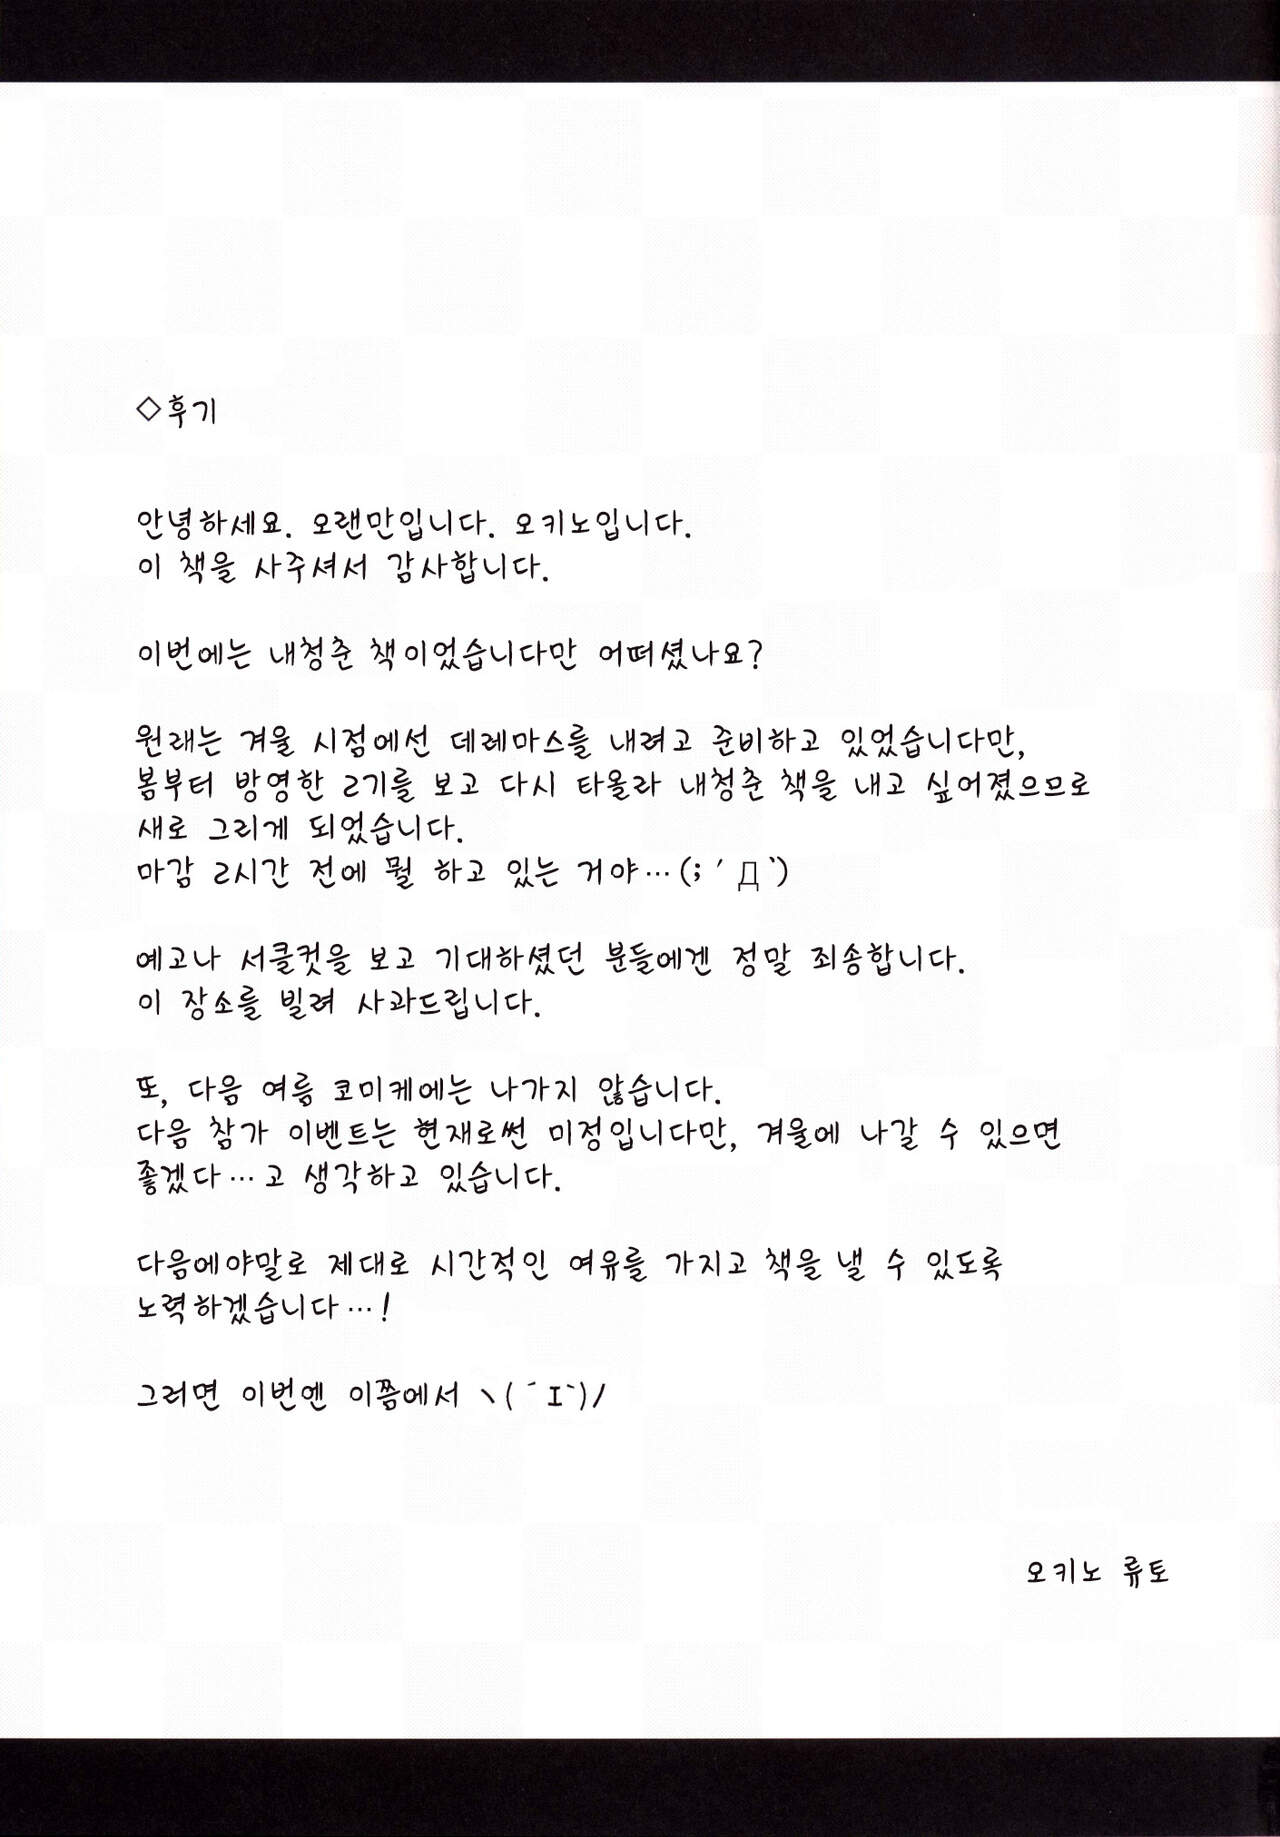 ◇후기
안녕하세요. 오랜만입니다. 오키노입니다.
이 책을 사주셔서 감사합니다.
이번에는 내청춘 책이었습니다만 어떠셨나요?
원래는 겨울 시점에선 데레마스를 내려고 준비하고 있었습니다만,
봄부터 방영한 2기를 보고 다시 타올라 내청춘 책을 내고 싶어졌으므로
새로 그리게 되었습니다.
마감 2시간 전에 뭘 하고 있는 거야…(;´Д`)
예고나 서클컷을 보고 기대하셨던 분들에겐 정말 죄송합니다.
이 장소를 빌려 사과드립니다.
또, 다음 여름 코미케에는 나가지 않습니다.
다음 참가 이벤트는 현재로썬 미정입니다만, 겨울에 나갈 수 있으면
좋겠다…고 생각하고 있습니다.
다음에야말로 제대로 시간적인 여유를 가지고 책을 낼 수 있도록
노력하겠습니다…!
그러면 이번엔 이쯤에서 ヽ(´ｴ`)/
오키노 류토